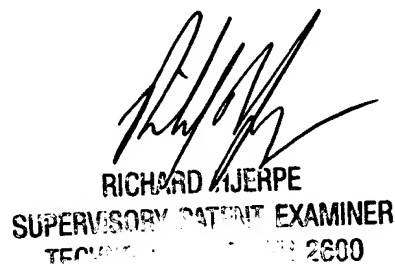 RICHARD HJERPE
SUPERVISORY PATENT EXAMINER
2600